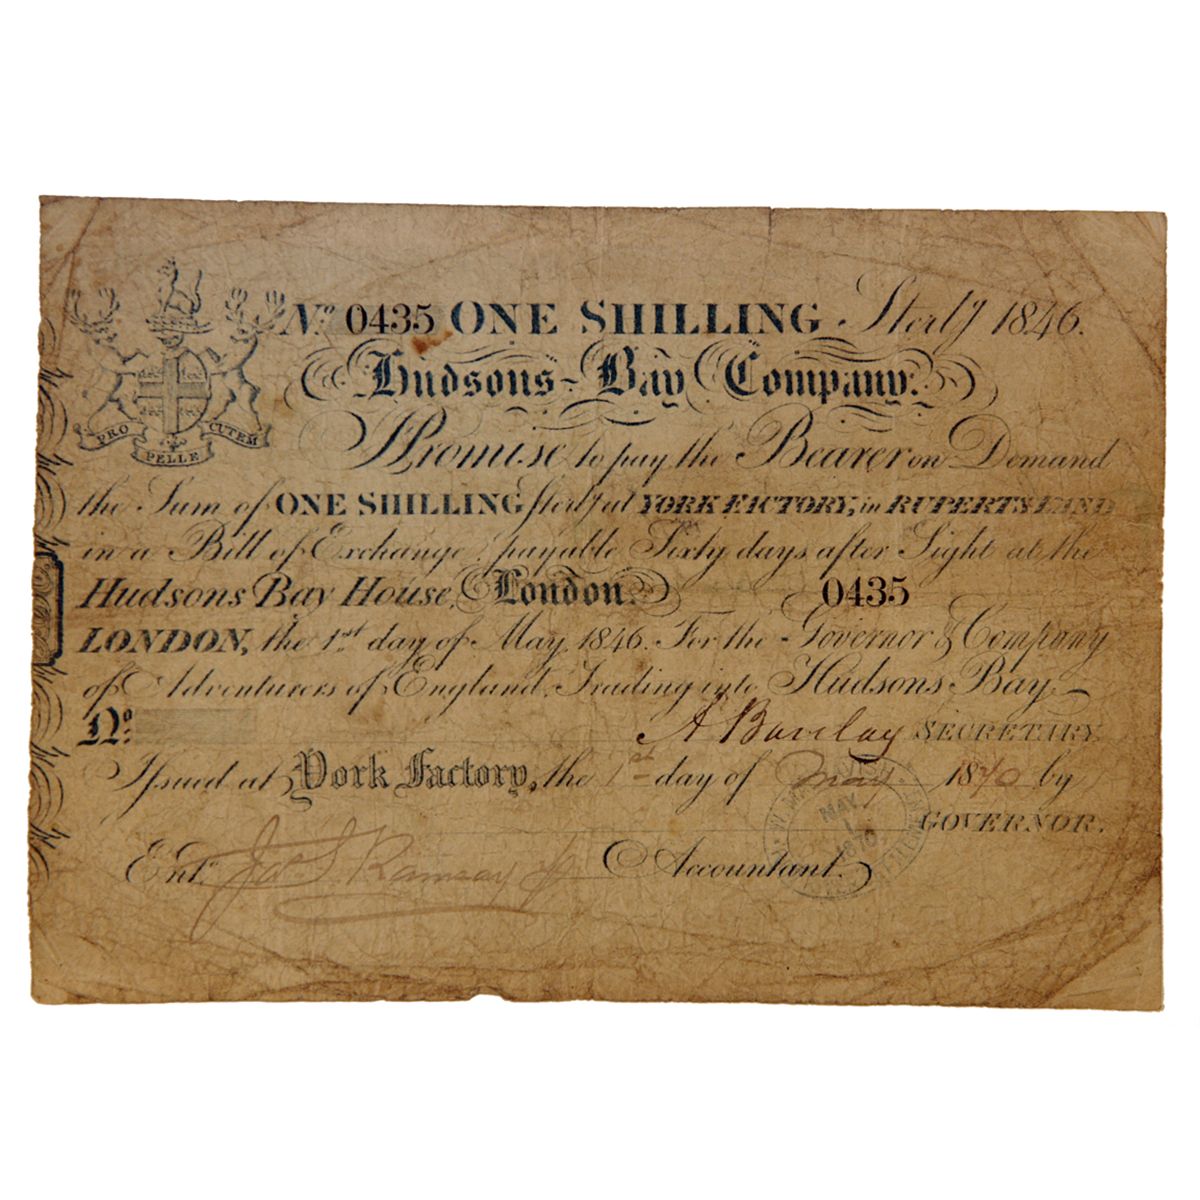 No. 0435 ONE SHILLING Sterlg 1846.
Hudsons-Bay Company.
PRO PELLE CUTEM
I Promise to pay the Bearer on Demand
the Sum of ONE SHILLING Sterlg at YORK FACTORY, in RUPERTS LAND
in a Bill of Exchange payable Sixty days after Sight at the
Hudsons Bay House, London. 0435
LONDON, the 1st day of May 1846. For the Governor & Company
of Adventurers of England Trading into Hudsons Bay
No. A Barclay SECRETARY.
Issued at York Factory, the 1st day of May 1870 by
MAY 1 1870
GOVERNOR.
Entd. Jas S. Ramsay Jr Accountant.